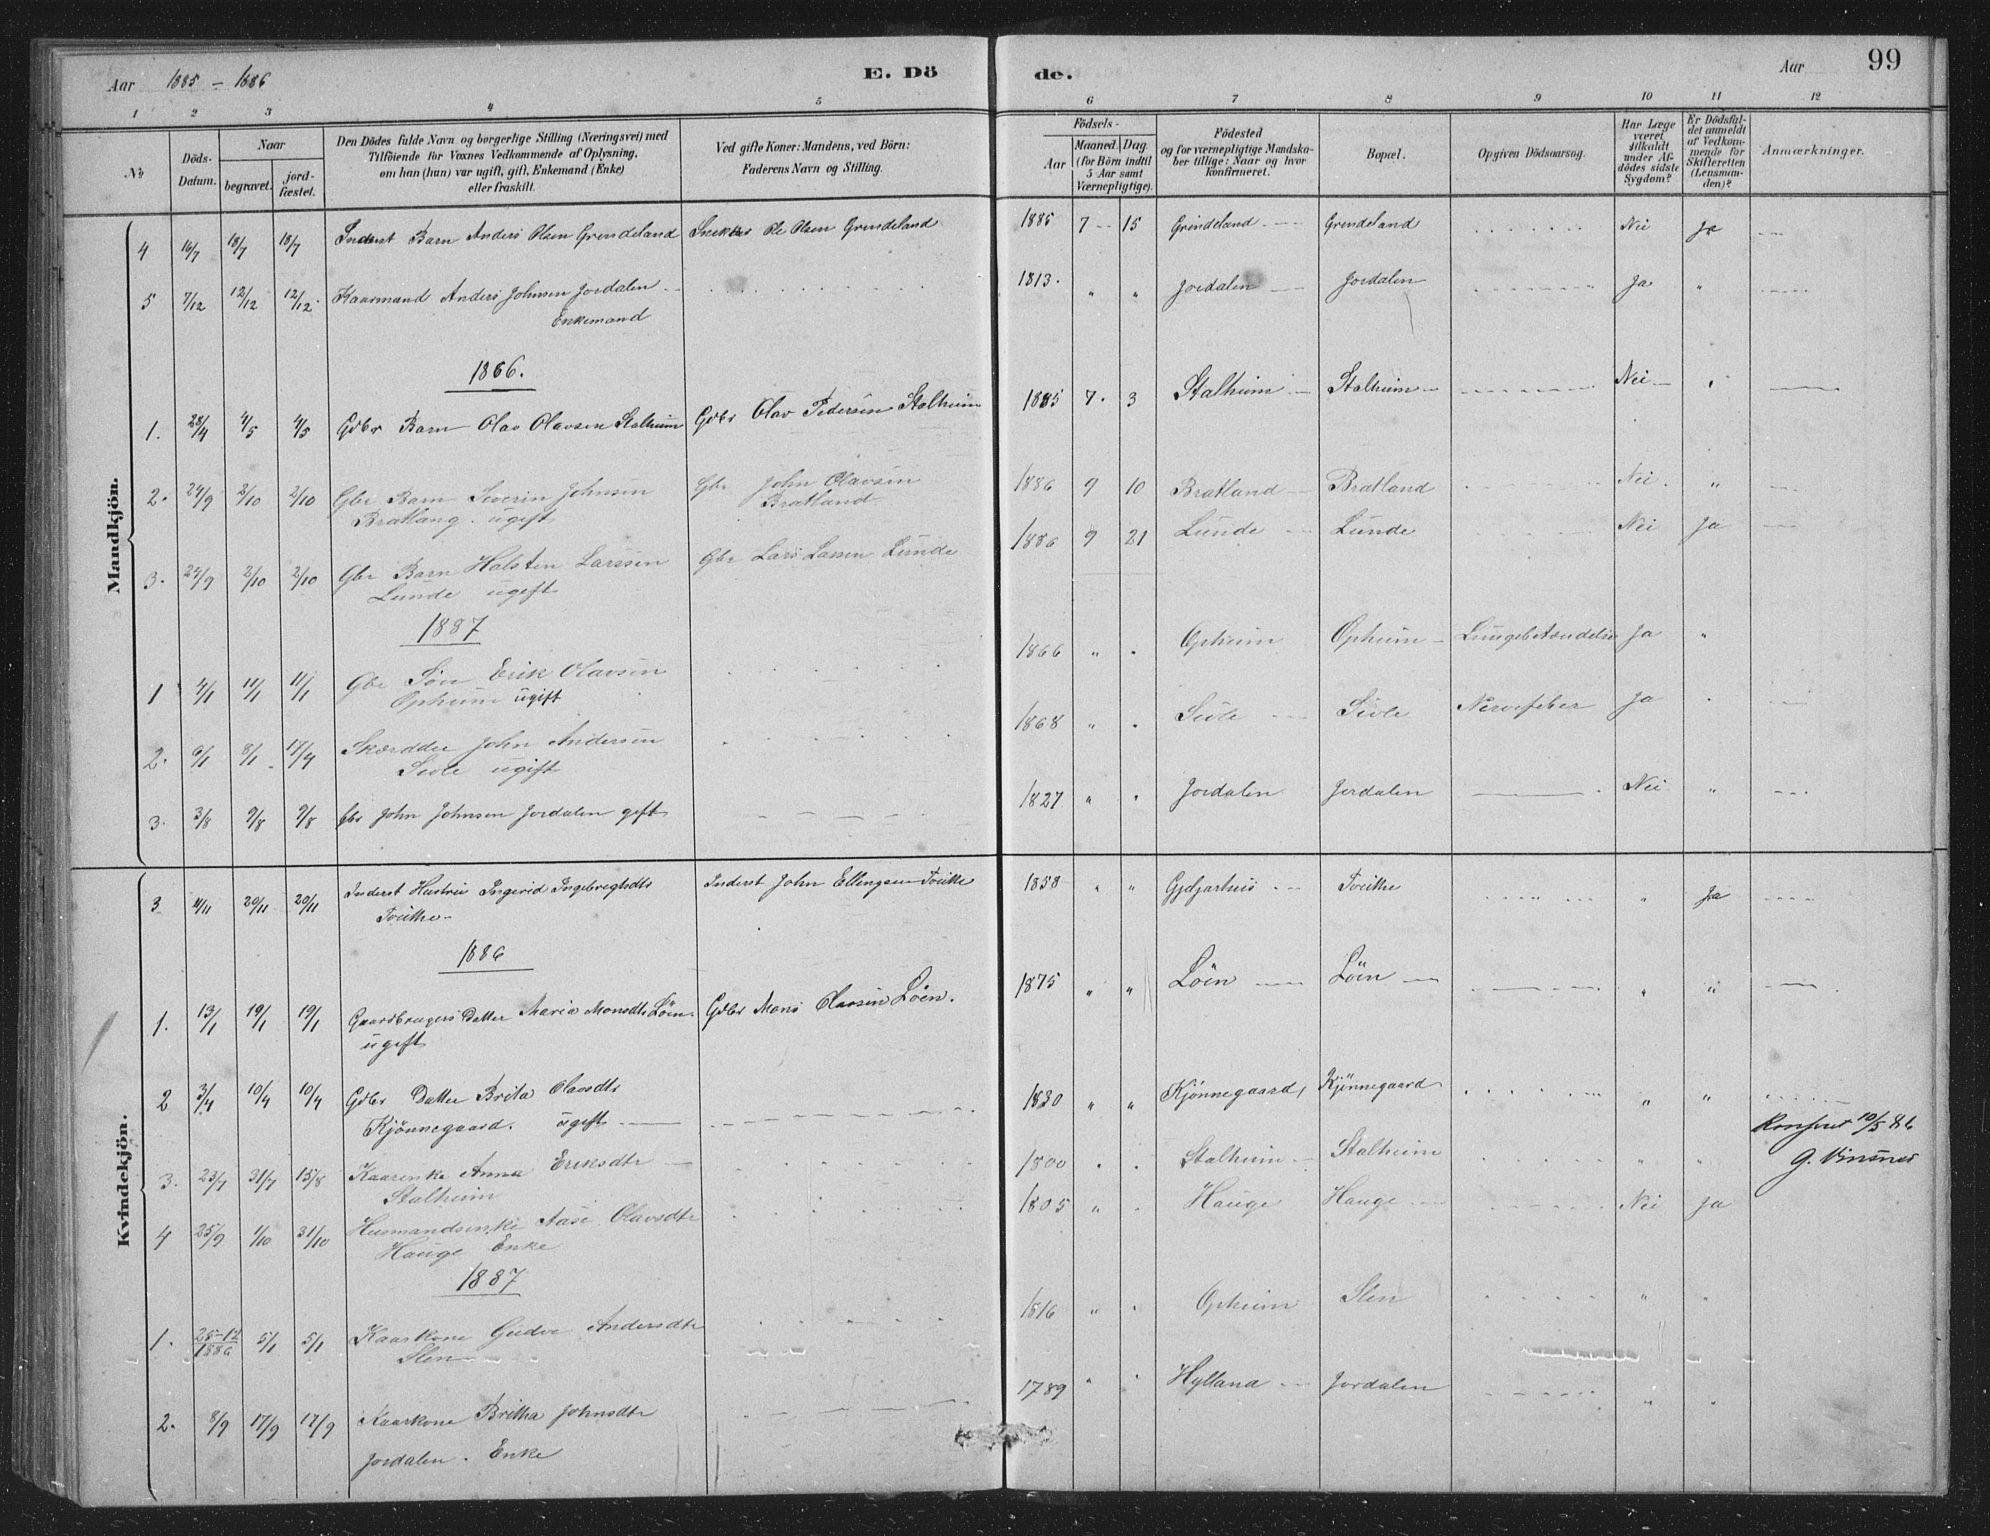 Aar 1885 - 1886 E. Dö de. Aar 99
1 2 3 4 5 6 7 8 9 10 11 12
No
Döds-Datum.
Naar
begravet.
jord-fæstet.
Den Dödes fulde Navn og borgerlige Stilling (Næringsvei) med
Tilföiende for Voxnes Vedkommende af Oplysning,
om han (hun) var ugift, gift, Enkemand (Enke)
eller fraskilt.
Ved gifte Koner: Mandens, ved Börn:
Faderens Navn og Stilling.
Födsels-
Aar
Maaned. Dag.
(for Börn indtil
5 Aar samt
Værnepligtige).
Födested
og for værnepligtige Mandska-
ber tillige: Naar og hvor
konfirmeret.
Bopæl.
Opgiven Dödsaarsag.
Har Læge
været
tilkaldt
under Af-
dödes sidste
Sygdom?
Er Dödsfal-
det anmeldt
af Vedkom-
mende for
Skifteretten
(Lensman-
den)?
Anmærkninger.
Mandkjön.
4 16/7 18/7 18/7 Inderst Barn Anders Olsen Grendeland Ole Olsen Grendeland 1885 7 15 Grindeland Grendeland Nei Ja
5 7/12 12/12 12/12 Kaarmand Anders Johnsen Jordalen 1813 " " Jordalen Jordalen Ja "
Enkemand
1866.
1. 28/4 4/5 4/5 Gdbr Barn Olav Olavsen Stalheim Gdbr Olav Pedersen Stalheim 1885 7 3 Stalheim Stalheim Nei "
2. 24/9 2/10 2/10 Gbr Barn Severin Johnsen Gbr John Olavsen 1886 9 10 Bratland Bratland Nei "
Bratlang. ugift Bratland
3. 24/9 2/10 2/10 Gbr Barn Halsten Larssen Gbr Lars Larsen Lunde 1886 9 21 Lunde Lunde Nei Ja
Lunde ugift
1887
1 4/1 11/1 11/1 Gbr Søn Erik Olavsen 1866 " " Opheim Opheim Lungebetændelse Ja "
Opheim ugift
2. 6/1 8/1 17/4 Skrædder John Andersen 1868 " " Sivle Sivle Nervefeber Ja "
Sivle ugift
3. 3/8 9/8 9/8 Gbr John Johnsen Jordalen gift 1827 " " Jordalen Jordalen Nei "
Kvindekjön.
3 11/11 20/11 20/11 Inderst Hustru Ingerid Ingebregtsdtr Inderst John Ellingsen Tvithe 1858 " " Gjeljarhus Tvithe " Ja
Tvithe
1886
1. 13/1 19/1 19/1 Gaardbrugers Datter Maria Monsdtr Löen Gdbr Mons Olavsen Löen. 1875 " " Löen Löen " "
ugift
2 3/4 10/4 10/4 Gdbr Datter Brita Olavsdtr 1830 " " Kjönnegaard Kjönnegaard " "
Kjönnegaard. ugift
Konferert 10/5 86
G. Vinsnes
3. 23/7 31/7 15/8 Kaarenke Anna Eriksdtr 1800 " " Stalheim Stalheim " "
Stalheim
4 25/9 1/10 31/10 Husmandsenke Aase Olavsdtr 1805 " " Hauge Hauge Nei Ja
Hauge Enke
1887
1. 25-12/1886 5/1 5/1 Kaarkone Gudve Andersdtr 1816 " " Opheim Slen " "
Slen
2. 8/9 17/9 17/9 Kaarkone Britha Johnsdtr 1789 " " Hylland Jordalen " "
Jordalen. Enke